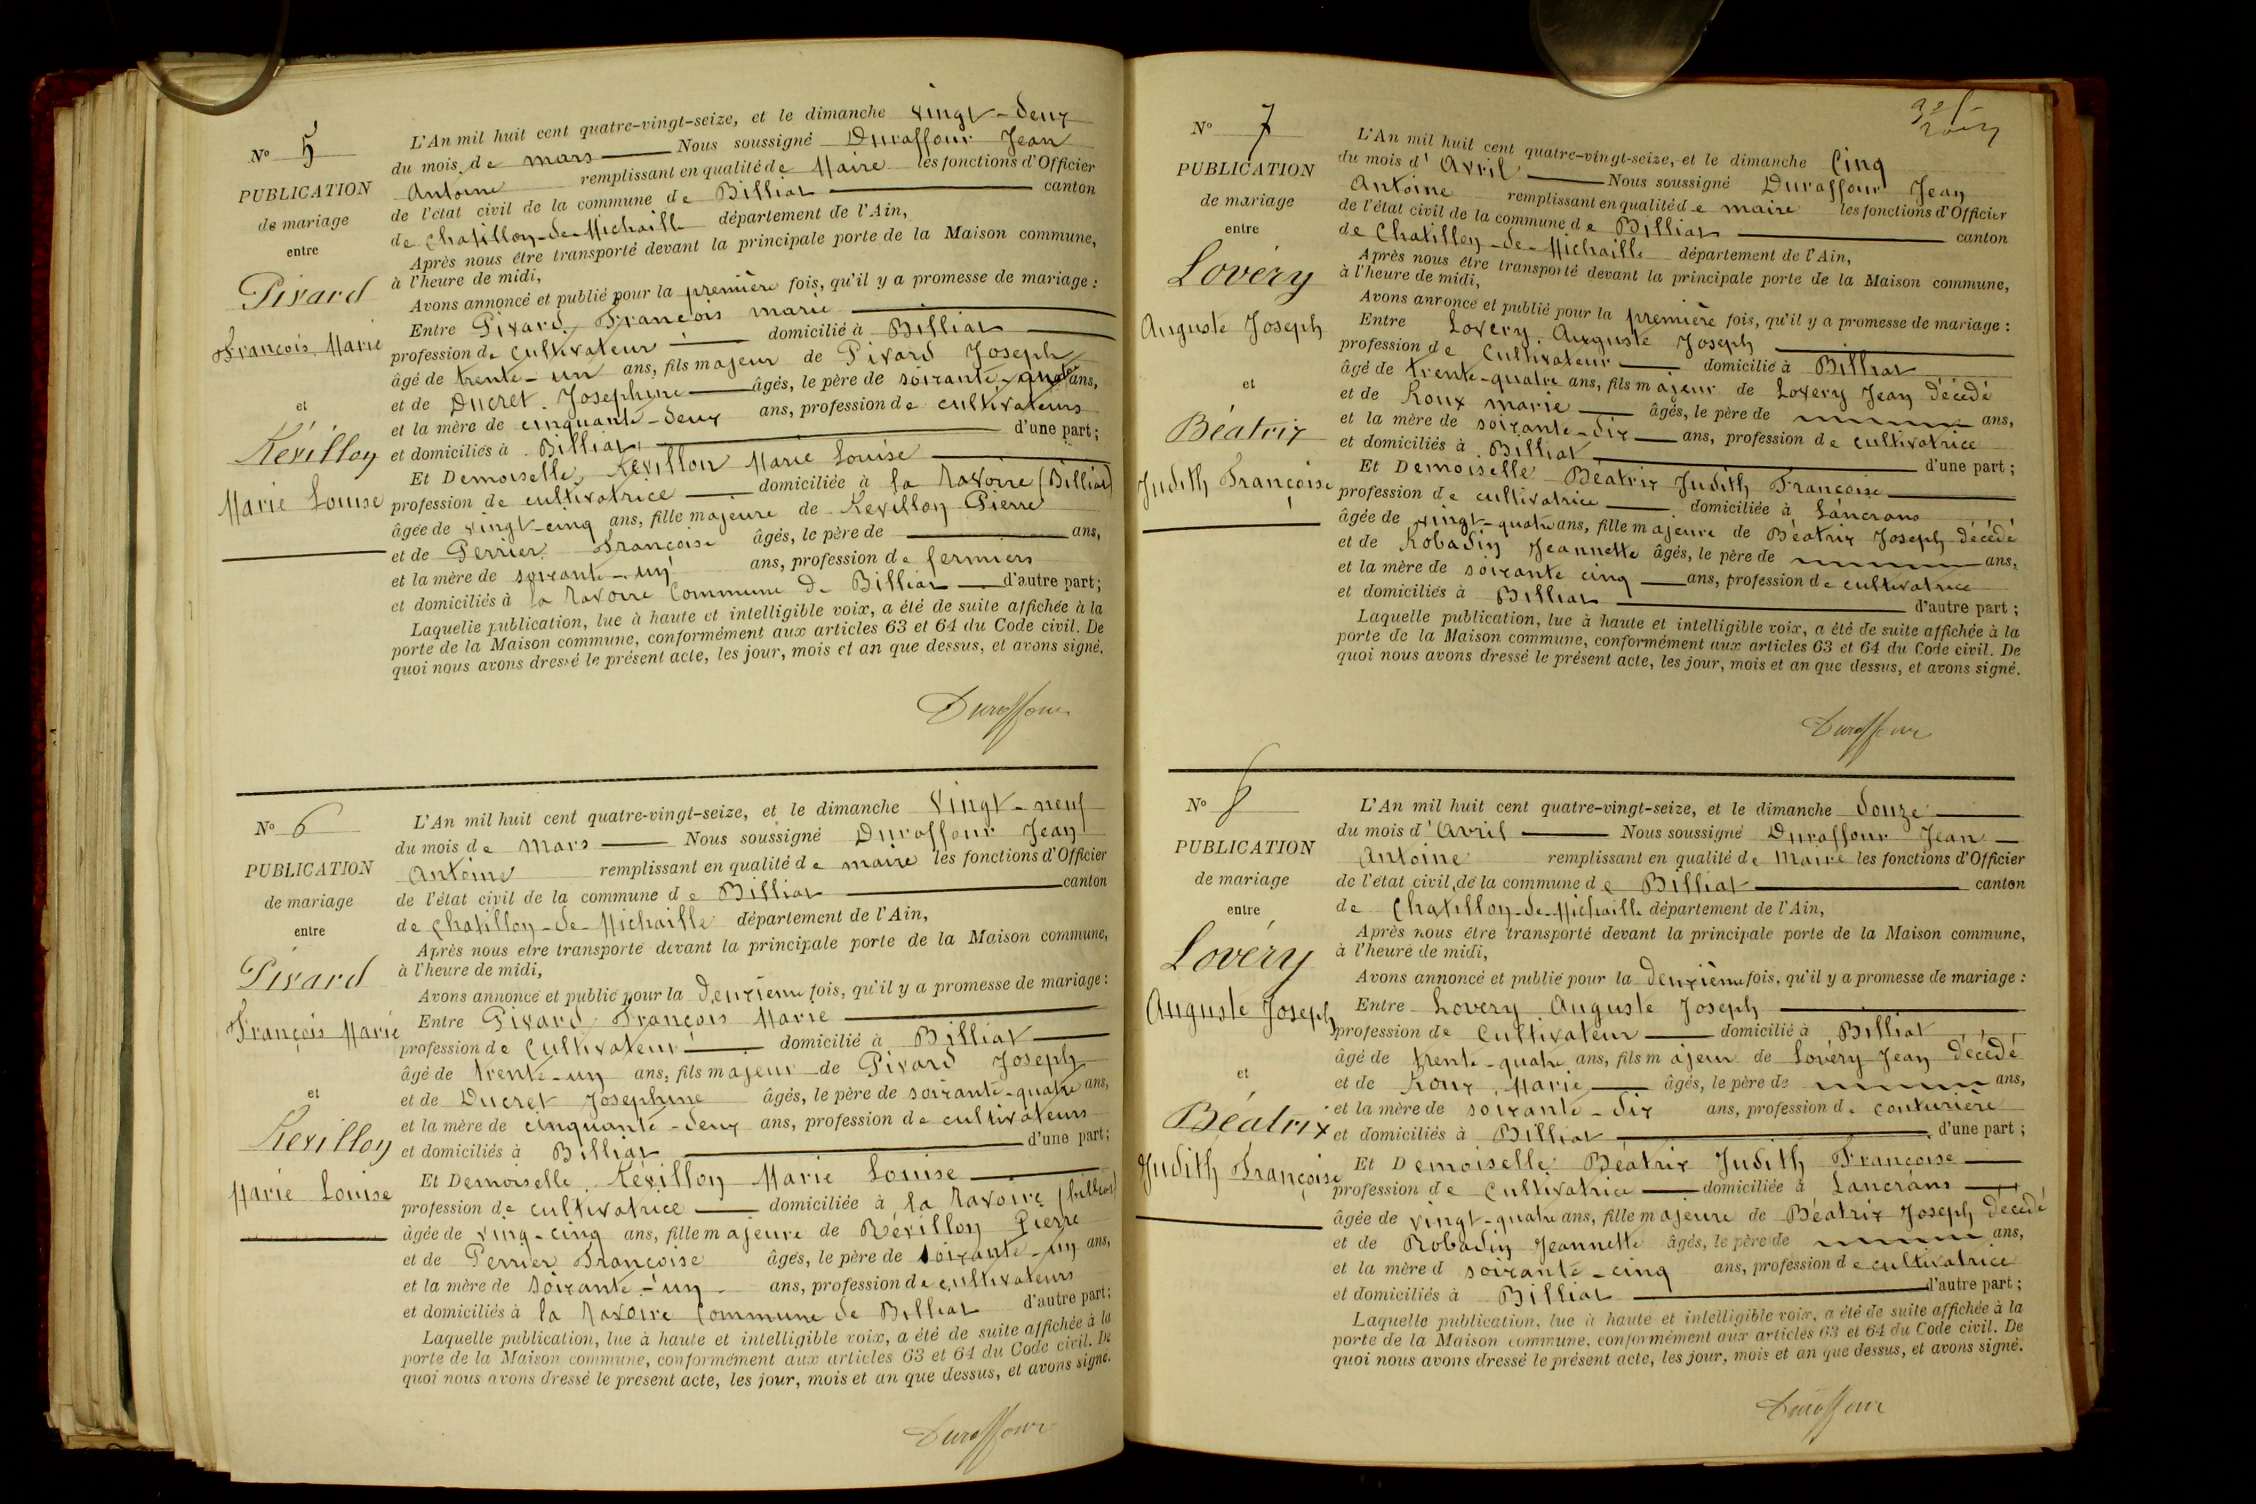 N° 5
PUBLICATION
de mariage
entre
Pivard
François Marie
et
Révillon
Marie Louise
L'An mil huit cent quatre-vingt-seize, et le dimanche vingt-deux
du mois de mars Nous soussigné Duraffour Jean
Antoine remplissant en qualité de Maire les fonctions d'Officier
de l'état civil de la commune de Billiat canton
de Chatillon-de-Michaille département de l'Ain,
Après nous être transporté devant la principale porte de la Maison commune,
à l'heure de midi,
Avons annoncé et publié pour la première fois, qu'il y a promesse de mariage :
Entre Pivard, François marie
profession de cultivateur domicilié à Billiat
âgé de trente-un ans, fils majeur de Pivard Joseph
et de Ducret Josephine âgés, le père de soixante-quatre ans,
et la mère de cinquante-deux ans, profession de cultivateurs
et domiciliés à Billiat d'une part ;
Et Demoiselle, Révillon Marie Louise
profession de cultivatrice domiciliée à la Ravoire (Billiat)
âgée de vingt-cinq ans, fille majeure de Revillon Pierre
et de Perrier Françoise âgés, le père de ans,
et la mère de soixante-un ans, profession de fermiers
et domiciliés à la Ravoire Commune de Billiat d'autre part ;
Laquelle publication, lue à haute et intelligible voix, a été de suite affichée à la
porte de la Maison commune, conformément aux articles 63 et 64 du Code civil. De
quoi nous avons dressé le présent acte, les jour, mois et an que dessus, et avons signé.
Duraffour
N° 6
PUBLICATION
de mariage
entre
Pivard
François Marie
et
Révillon
Marie Louise
L'An mil huit cent quatre-vingt-seize, et le dimanche vingt-neuf
du mois de Mars Nous soussigné Duraffour Jean
Antoine remplissant en qualité de maire les fonctions d'Officier
de l'état civil de la commune de Billiat canton
de Chatillon-de-Michaille département de l'Ain,
Après nous être transporté devant la principale porte de la Maison commune,
à l'heure de midi,
Avons annoncé et publié pour la deuxième fois, qu'il y a promesse de mariage :
Entre Pivard, François Marie
profession de Cultivateur domicilié à Billiat
âgé de trente-un ans, fils majeur de Pivard Joseph
et de Ducret Josephine âgés, le père de soixante-quatre ans,
et la mère de cinquante-deux ans, profession de cultivateurs
et domiciliés à Billiat d'une part ;
Et Demoiselle, Révillon Marie Louise
profession de cultivatrice domiciliée à la Ravoire (billiat)
âgée de ving-cinq ans, fille majeure de Révillon Pierre
et de Perrier Françoise âgés, le père de soixante-un ans,
et la mère de soixante-un ans, profession de cultivateurs
et domiciliés à la Ravoire Commune de Billiat d'autre part ;
Laquelle publication, lue à haute et intelligible voix, a été de suite affichée à la
porte de la Maison commune, conformément aux articles 63 et 64 du Code civil. De
quoi nous avons dressé le présent acte, les jour, mois et an que dessus, et avons signé.
Duraffour
N° 7
PUBLICATION
de mariage
entre
Lovéry
Auguste Joseph
et
Béatrix
Judith Françoise
L'An mil huit cent quatre-vingt-seize, et le dimanche Cinq
du mois d'Avril Nous soussigné Duraffour Jean
Antoine remplissant en qualité de maire les fonctions d'Officier
de l'état civil de la commune de Billiat canton
de Chatillon-de-Michaille département de l'Ain,
Après nous être transporté devant la principale porte de la Maison commune,
à l'heure de midi,
Avons annoncé et publié pour la première fois, qu'il y a promesse de mariage :
Entre Lovery Auguste Joseph
profession de Cultivateur domicilié à Billiat
âgé de trente-quatre ans, fils majeur de Lovery Jean décédé
et de Roux marie âgés, le père de ans,
et la mère de soixante-dix ans, profession de cultivatrice
et domiciliés à Billiat d'une part ;
Et Demoiselle Béatrix Judith Françoise
profession de cultivatrice domiciliée à Lancrans
âgée de vingt-quatre ans, fille majeure de Béatrix Joseph décédé
et de Robadin Jeannette âgés, le père de ans,
et la mère de soixante cinq ans, profession de cultivatrice
et domiciliés à Billiat d'autre part ;
Laquelle publication, lue à haute et intelligible voix, a été de suite affichée à la
porte de la Maison commune, conformément aux articles 63 et 64 du Code civil. De
quoi nous avons dressé le présent acte, les jour, mois et an que dessus, et avons signé.
Duraffour
N° 8
PUBLICATION
de mariage
entre
Lovéry
Auguste Joseph
et
Béatrix
Judith Françoise
L'An mil huit cent quatre-vingt-seize, et le dimanche douze
du mois d'Avril Nous soussigné Duraffour Jean
Antoine remplissant en qualité de Maire les fonctions d'Officier
de l'état civil de la commune de Billiat canton
de Chatillon-de-Michaille département de l'Ain,
Après nous être transporté devant la principale porte de la Maison commune,
à l'heure de midi,
Avons annoncé et publié pour la deuxième fois, qu'il y a promesse de mariage :
Entre Lovery Auguste Joseph
profession de Cultivateur domicilié à Billiat
âgé de trente-quatre ans, fils majeur de Lovéry Jean décédé
et de Roux Marie âgés, le père de ans,
et la mère de soixante-dix ans, profession de couturière
et domiciliés à Billiat d'une part ;
Et Demoiselle Béatrix Judith Françoise
profession de Cultivatrice domiciliée à Lancrans
âgée de vingt-quatre ans, fille majeure de Béatrix Joseph décédé
et de Robadin Jeannette âgés, le père de ans,
et la mère d soixante-cinq ans, profession de cultivatrice
et domiciliés à Billiat d'autre part ;
Laquelle publication, lue à haute et intelligible voix, a été de suite affichée à la
porte de la Maison commune, conformément aux articles 63 et 64 du Code civil. De
quoi nous avons dressé le présent acte, les jour, mois et an que dessus, et avons signé.
Duraffour